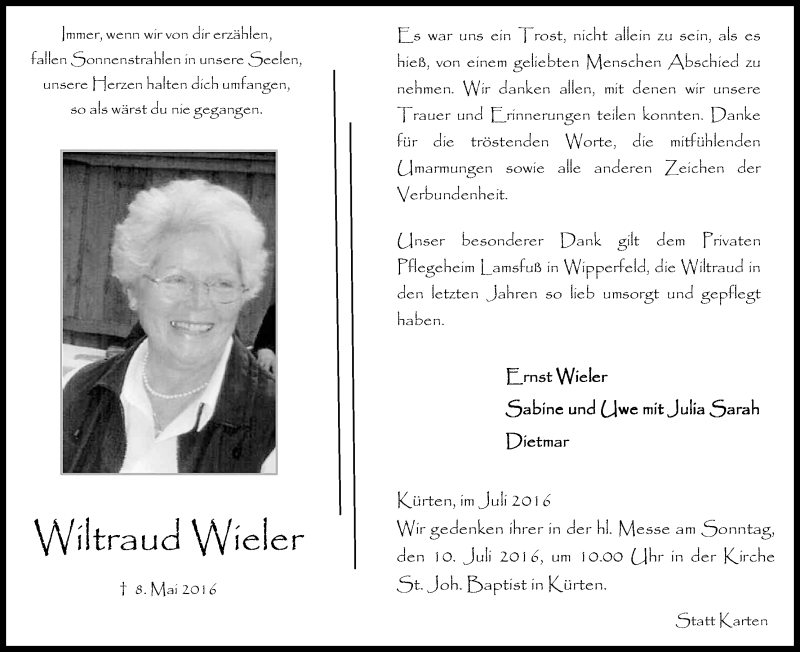 Immer, wenn wir von dir erzählen,
fallen Sonnenstrahlen in unsere Seelen,
unsere Herzen halten dich umfangen,
so als wärst du nie gegangen.
Wiltraud Wieler
† 8. Mai 2016
Es war uns ein Trost, nicht allein zu sein, als es
hieß, von einem geliebten Menschen Abschied zu
nehmen. Wir danken allen, mit denen wir unsere
Trauer und Erinnerungen teilen konnten. Danke
für die tröstenden Worte, die mitfühlenden
Umarmungen sowie alle anderen Zeichen der
Verbundenheit.
Unser besonderer Dank gilt dem Privaten
Pflegeheim Lamsfuß in Wipperfeld, die Wiltraud in
den letzten Jahren so lieb umsorgt und gepflegt
haben.
Ernst Wieler
Sabine und Uwe mit Julia Sarah
Dietmar
Kürten, im Juli 2016
Wir gedenken ihrer in der hl. Messe am Sonntag,
den 10. Juli 2016, um 10.00 Uhr in der Kirche
St. Joh. Baptist in Kürten.
Statt Karten